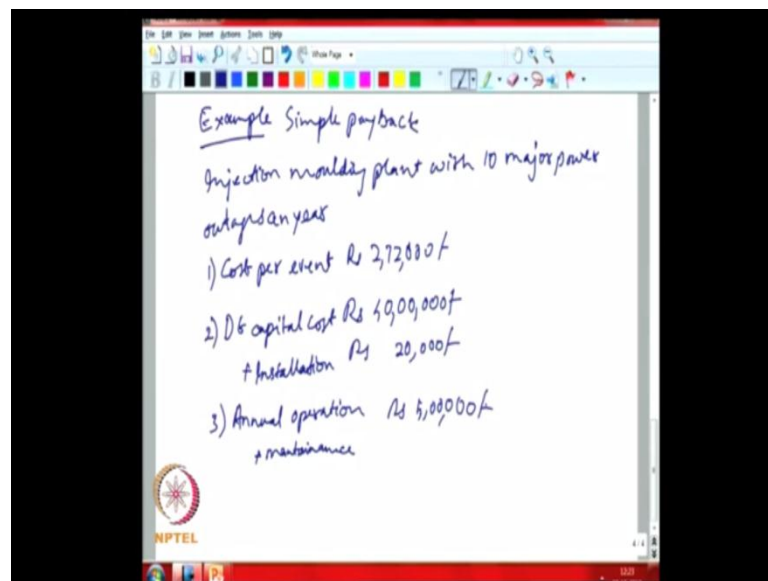 File Edit View Insert Actions Tools Help
Whole Page
Example Simple payback
Injection moulding plant with 10 major power
outages an year
1) Cost per event Rs 2,72,000/-
2) DG capital cost Rs 40,00,000/-
+ Installation Rs 20,000/-
3) Annual operation Rs 5,00,000/-
+ maintainance
NPTEL
4/4
12:23